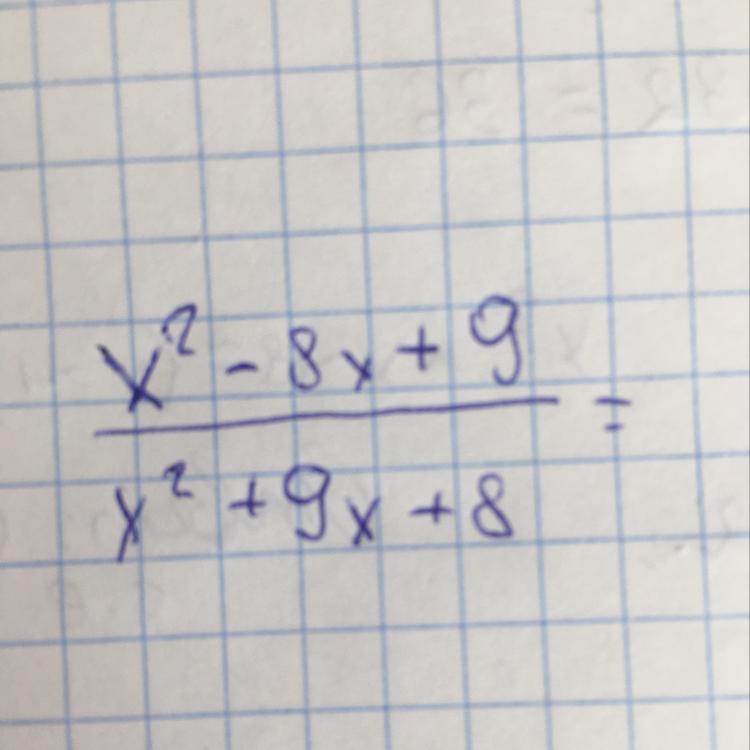 x² - 8x + 9
x² + 9x + 8 =